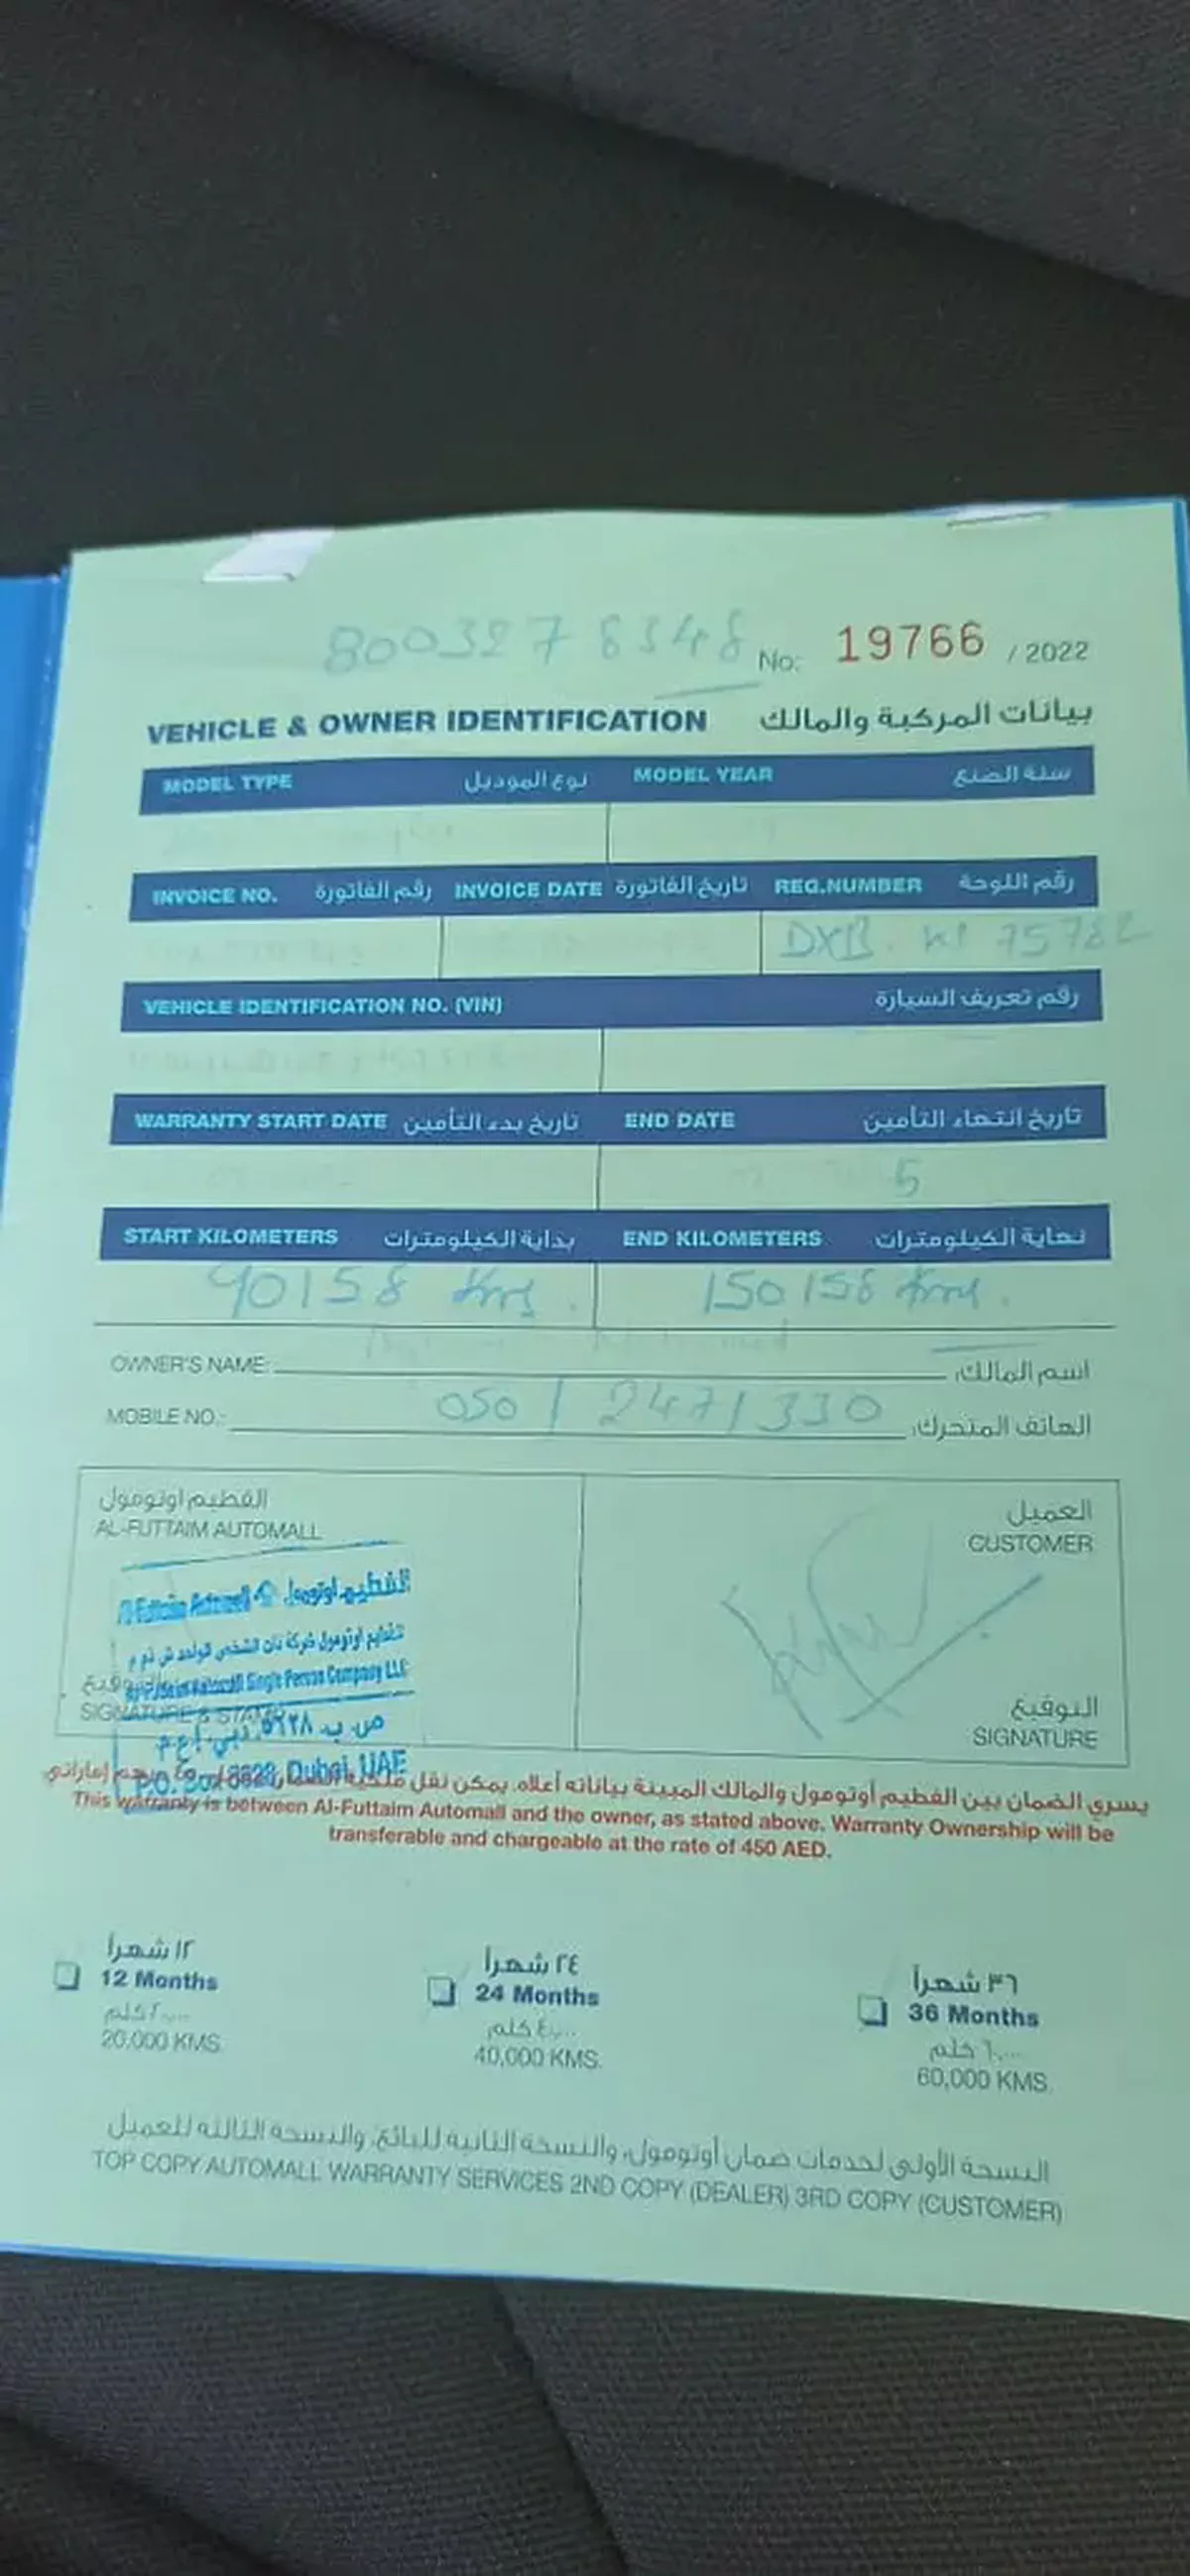 8003278348 No: 19766 / 2022
VEHICLE & OWNER IDENTIFICATION بيانات المركبة والمالك
MODEL TYPE نوع الموديل MODEL YEAR سنة الصنع
INVOICE NO. رقم الفاتورة INVOICE DATE تاريخ الفاتورة REG.NUMBER رقم اللوحة
DXB. 75782
VEHICLE IDENTIFICATION NO. (VIN) رقم تعريف السيارة
WARRANTY START DATE تاريخ بدء التأمين END DATE تاريخ انتهاء التأمين
5
START KILOMETERS بداية الكيلومترات END KILOMETERS نهاية الكيلومترات
90158 Kms. 150158 Kms.
OWNER'S NAME: اسم المالك:
MOBILE NO.: 050 / 2471330 الهاتف المتحرك:
الفطيم اوتومول
AL-FUTTAIM AUTOMALL
العميل
CUSTOMER
Al-Futtaim Automall الفطيم اوتومول
الفطيم اوتومول شركة ذات الشخص الواحد ش ذ م م
Al-Futtaim Automall Single Person Company LLC
التوقيع
SIGNATURE & STAMP
ص.ب. ٥٦٢٨، دبي، أ.ع.م
Dubai, UAE
التوقيع
SIGNATURE
يسري الضمان بين الفطيم أوتومول والمالك المبينة بياناته أعلاه. يمكن نقل ملكية الضمان درهم إماراتي
This warranty is between Al-Futtaim Automall and the owner, as stated above. Warranty Ownership will be
transferable and chargeable at the rate of 450 AED.
١٢ شهراً
12 Months
٢٠,٠٠٠ كلم
20,000 KMS.
٢٤ شهراً
24 Months
٤٠,٠٠٠ كلم
40,000 KMS.
٣٦ شهراً
36 Months
٦٠,٠٠٠ كلم
60,000 KMS.
النسخة الأولى لخدمات ضمان أوتومول، والنسخة الثانية للبائع، والنسخة الثالثة للعميل
TOP COPY AUTOMALL WARRANTY SERVICES 2ND COPY (DEALER) 3RD COPY (CUSTOMER)